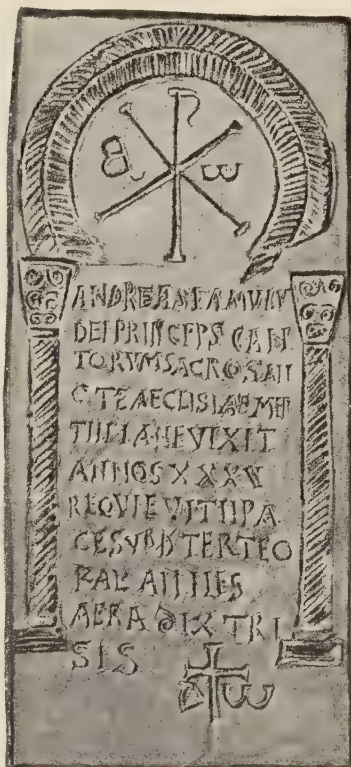 ω
ANDREAS FAMVLVS
DEI PRINCEPS CAN
TORVM SACROSAN
CTE AECLISIAE MER
TILLIANE VIXIT
ANNOS
REQVIEVIT IN PA
CE SVB D TERTEO
KAL APRILES
AERA DLX TRI
SIS
ω